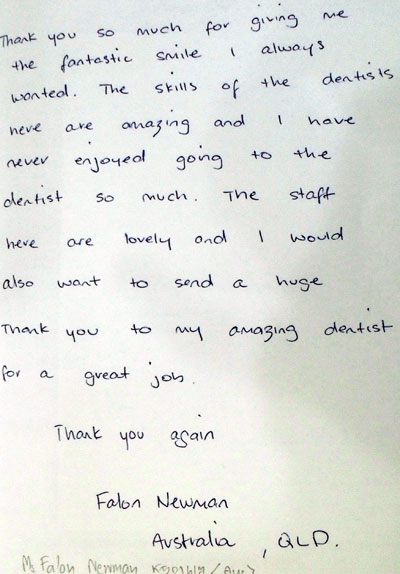 Thank you so much for giving me
the fantastic smile I always
wanted. The skills of the dentists
here are amazing and I have
never enjoyed going to the
dentist so much. The staff
here are lovely and I would
also want to send a huge
Thank you to my amazing dentist
for a great job.
Thank you again
Falon Newman
Australia, QLD.
Ms Falon Newman